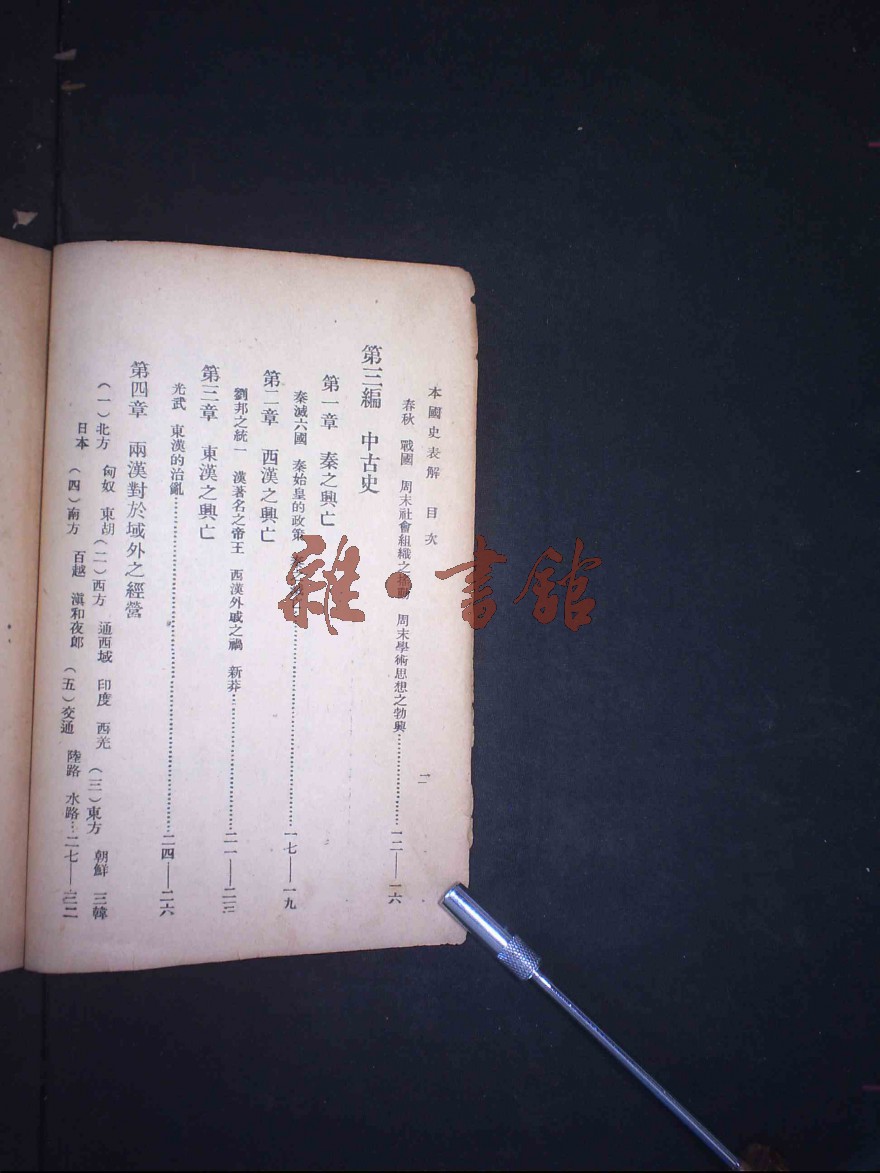 本國史表解 目次
二
春秋 戰國 周末社會組織之 周末學術思想之勃興…………一二—一六
第三編 中古史
第一章 秦之興亡
秦滅六國 秦始皇的政策…………一七—一九
第二章 西漢之興亡
劉邦之統一 漢著名之帝王 西漢外戚之禍 新莽…………二一—二三
第三章 東漢之興亡
光武 東漢的治亂…………二四—二六
第四章 兩漢對於域外之經營
(一)北方 匈奴 東胡(二)西方 通西域 印度 西羌 (三)東方 朝鮮 三韓
日本 (四)南方 百越 滇和夜郎 (五)交通 陸路 水路…二七—三二
雜·書館